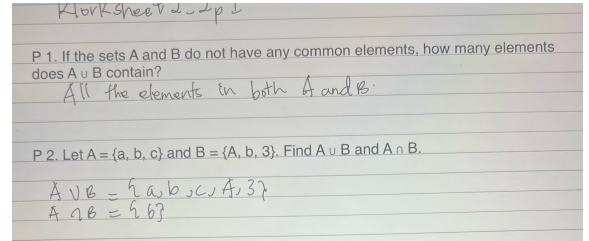 Worksheet 2.2p1
P 1. If the sets A and B do not have any common elements, how many elements
does A ∪ B contain?
All the elements in both A and B.
P 2. Let A = {a, b, c} and B = {A, b, 3}. Find A ∪ B and A ∩ B.
A ∪ B = {a, b, c, A, 3}
A ∩ B = {b}